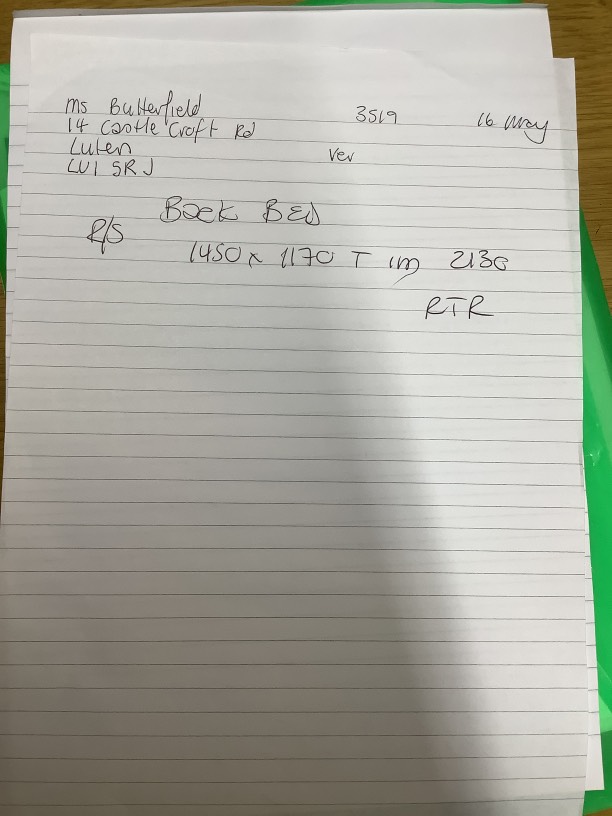 Ms Butterfield 3519 16 May
14 Castle Croft Rd
Luten Ver
LU1 5RJ
Back BED
R/S
1450 x 1170 T 1m 2130
RTR